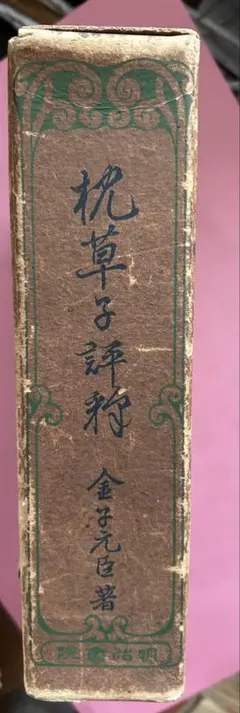 枕草子評釈
金子元臣著
明治書院